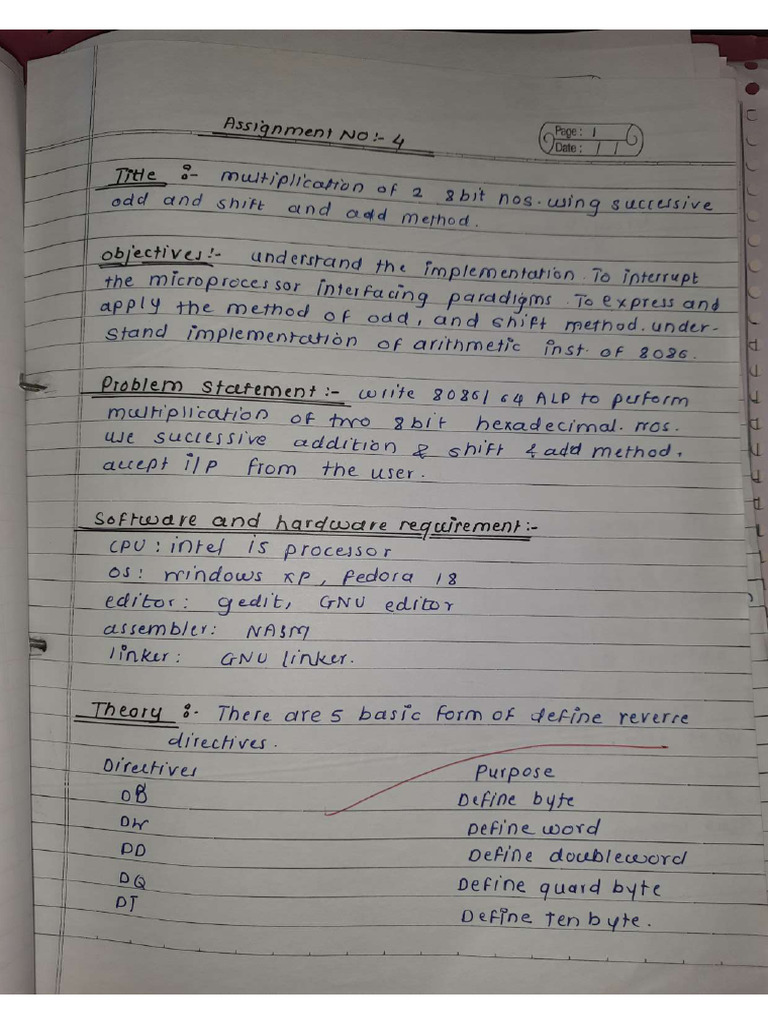 Assignment NO:- 4
Page: 1
Date: / /
Title :- multiplication of 2 8bit nos. using successive
odd and shift and add method.
objectives:- understand the implementation. To interrupt
the microprocessor interfacing paradigms. To express and
apply the method of odd, and shift method. under-
stand implementation of arithmetic inst. of 8086.
Problem statement:- write 8086/64 ALP to perform
multiplication of two 8bit hexadecimal. nos.
use successive addition & shift & add method,
accept i/p from the user.
Software and hardware requirement:-
CPU: intel is processor
OS: windows XP, fedora 18
editor: gedit, GNU editor
assembler: NASM
linker: GNU linker.
Theory :- There are 5 basic form of define reverse
directives.
Directives Purpose
DB Define byte
DW Define word
DD Define doubleword
DQ Define quard byte
DT Define ten byte.